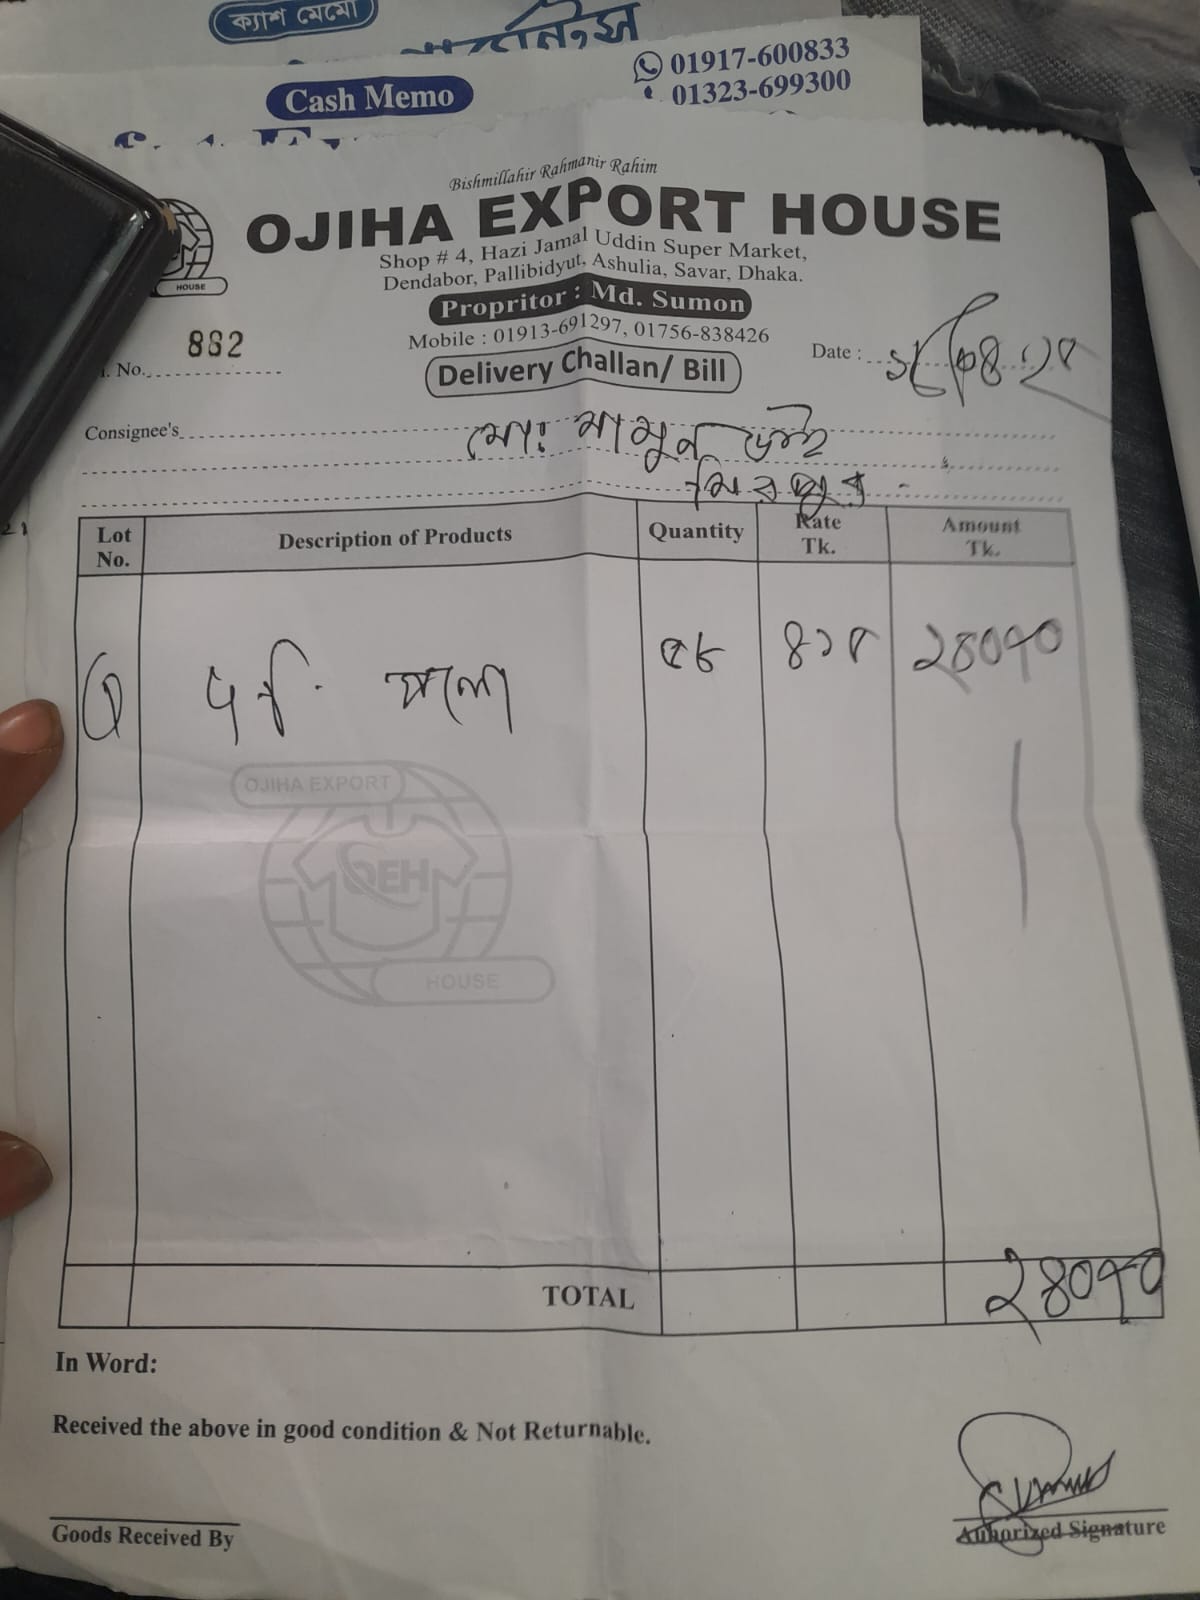 ক্যাশ মেমো
Cash Memo
01917-600833
01323-699300
Bishmillahir Rahmanir Rahim
OJIHA EXPORT HOUSE
HOUSE
Shop # 4, Hazi Jamal Uddin Super Market,
Dendabor, Pallibidyut, Ashulia, Savar, Dhaka.
Propritor : Md. Sumon
Mobile : 01913-691297, 01756-838426
No. 882
Date :
Delivery Challan/ Bill
Consignee's মোঃ মামুন ভাই
মিরপুর
Lot No. Description of Products Quantity Rate Tk. Amount Tk.
৫৮ ৪১৫ ২৪০৭০
OJIHA EXPORT
OEH
HOUSE
TOTAL ২৪০৭০
In Word:
Received the above in good condition & Not Returnable.
Goods Received By
Authorized Signature